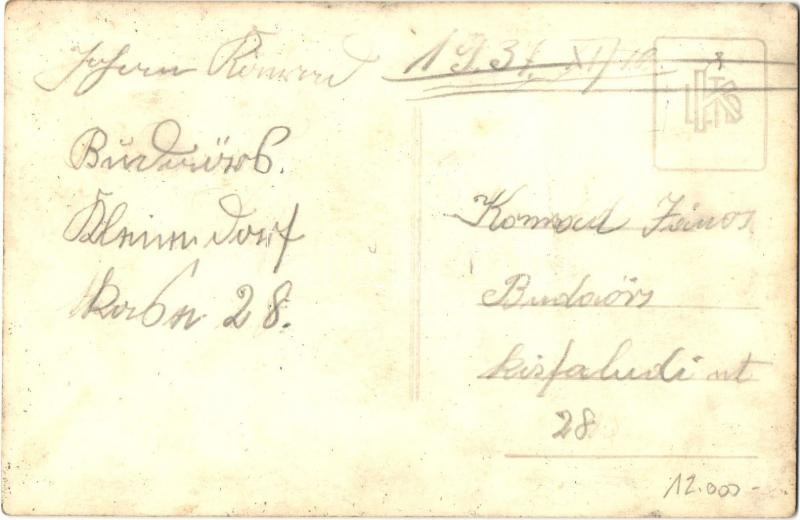 Johann Konrad
1937. XI/10.
Budaörs.
Kleindorf
28.
Konrad János
Budaörs
kisfaludi ut
28
12.000-